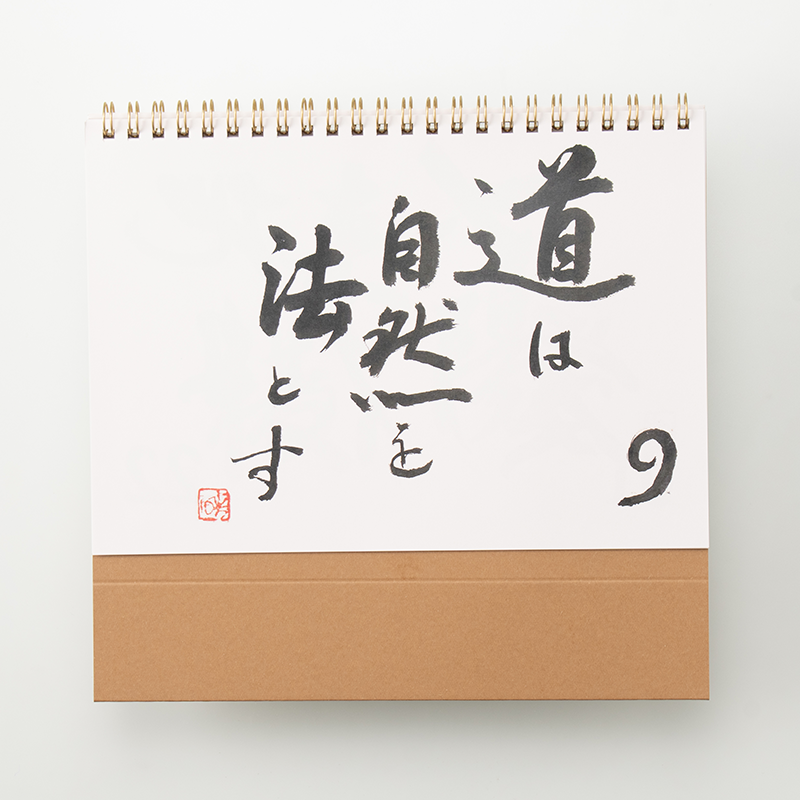 道は
自然を
法とす
9